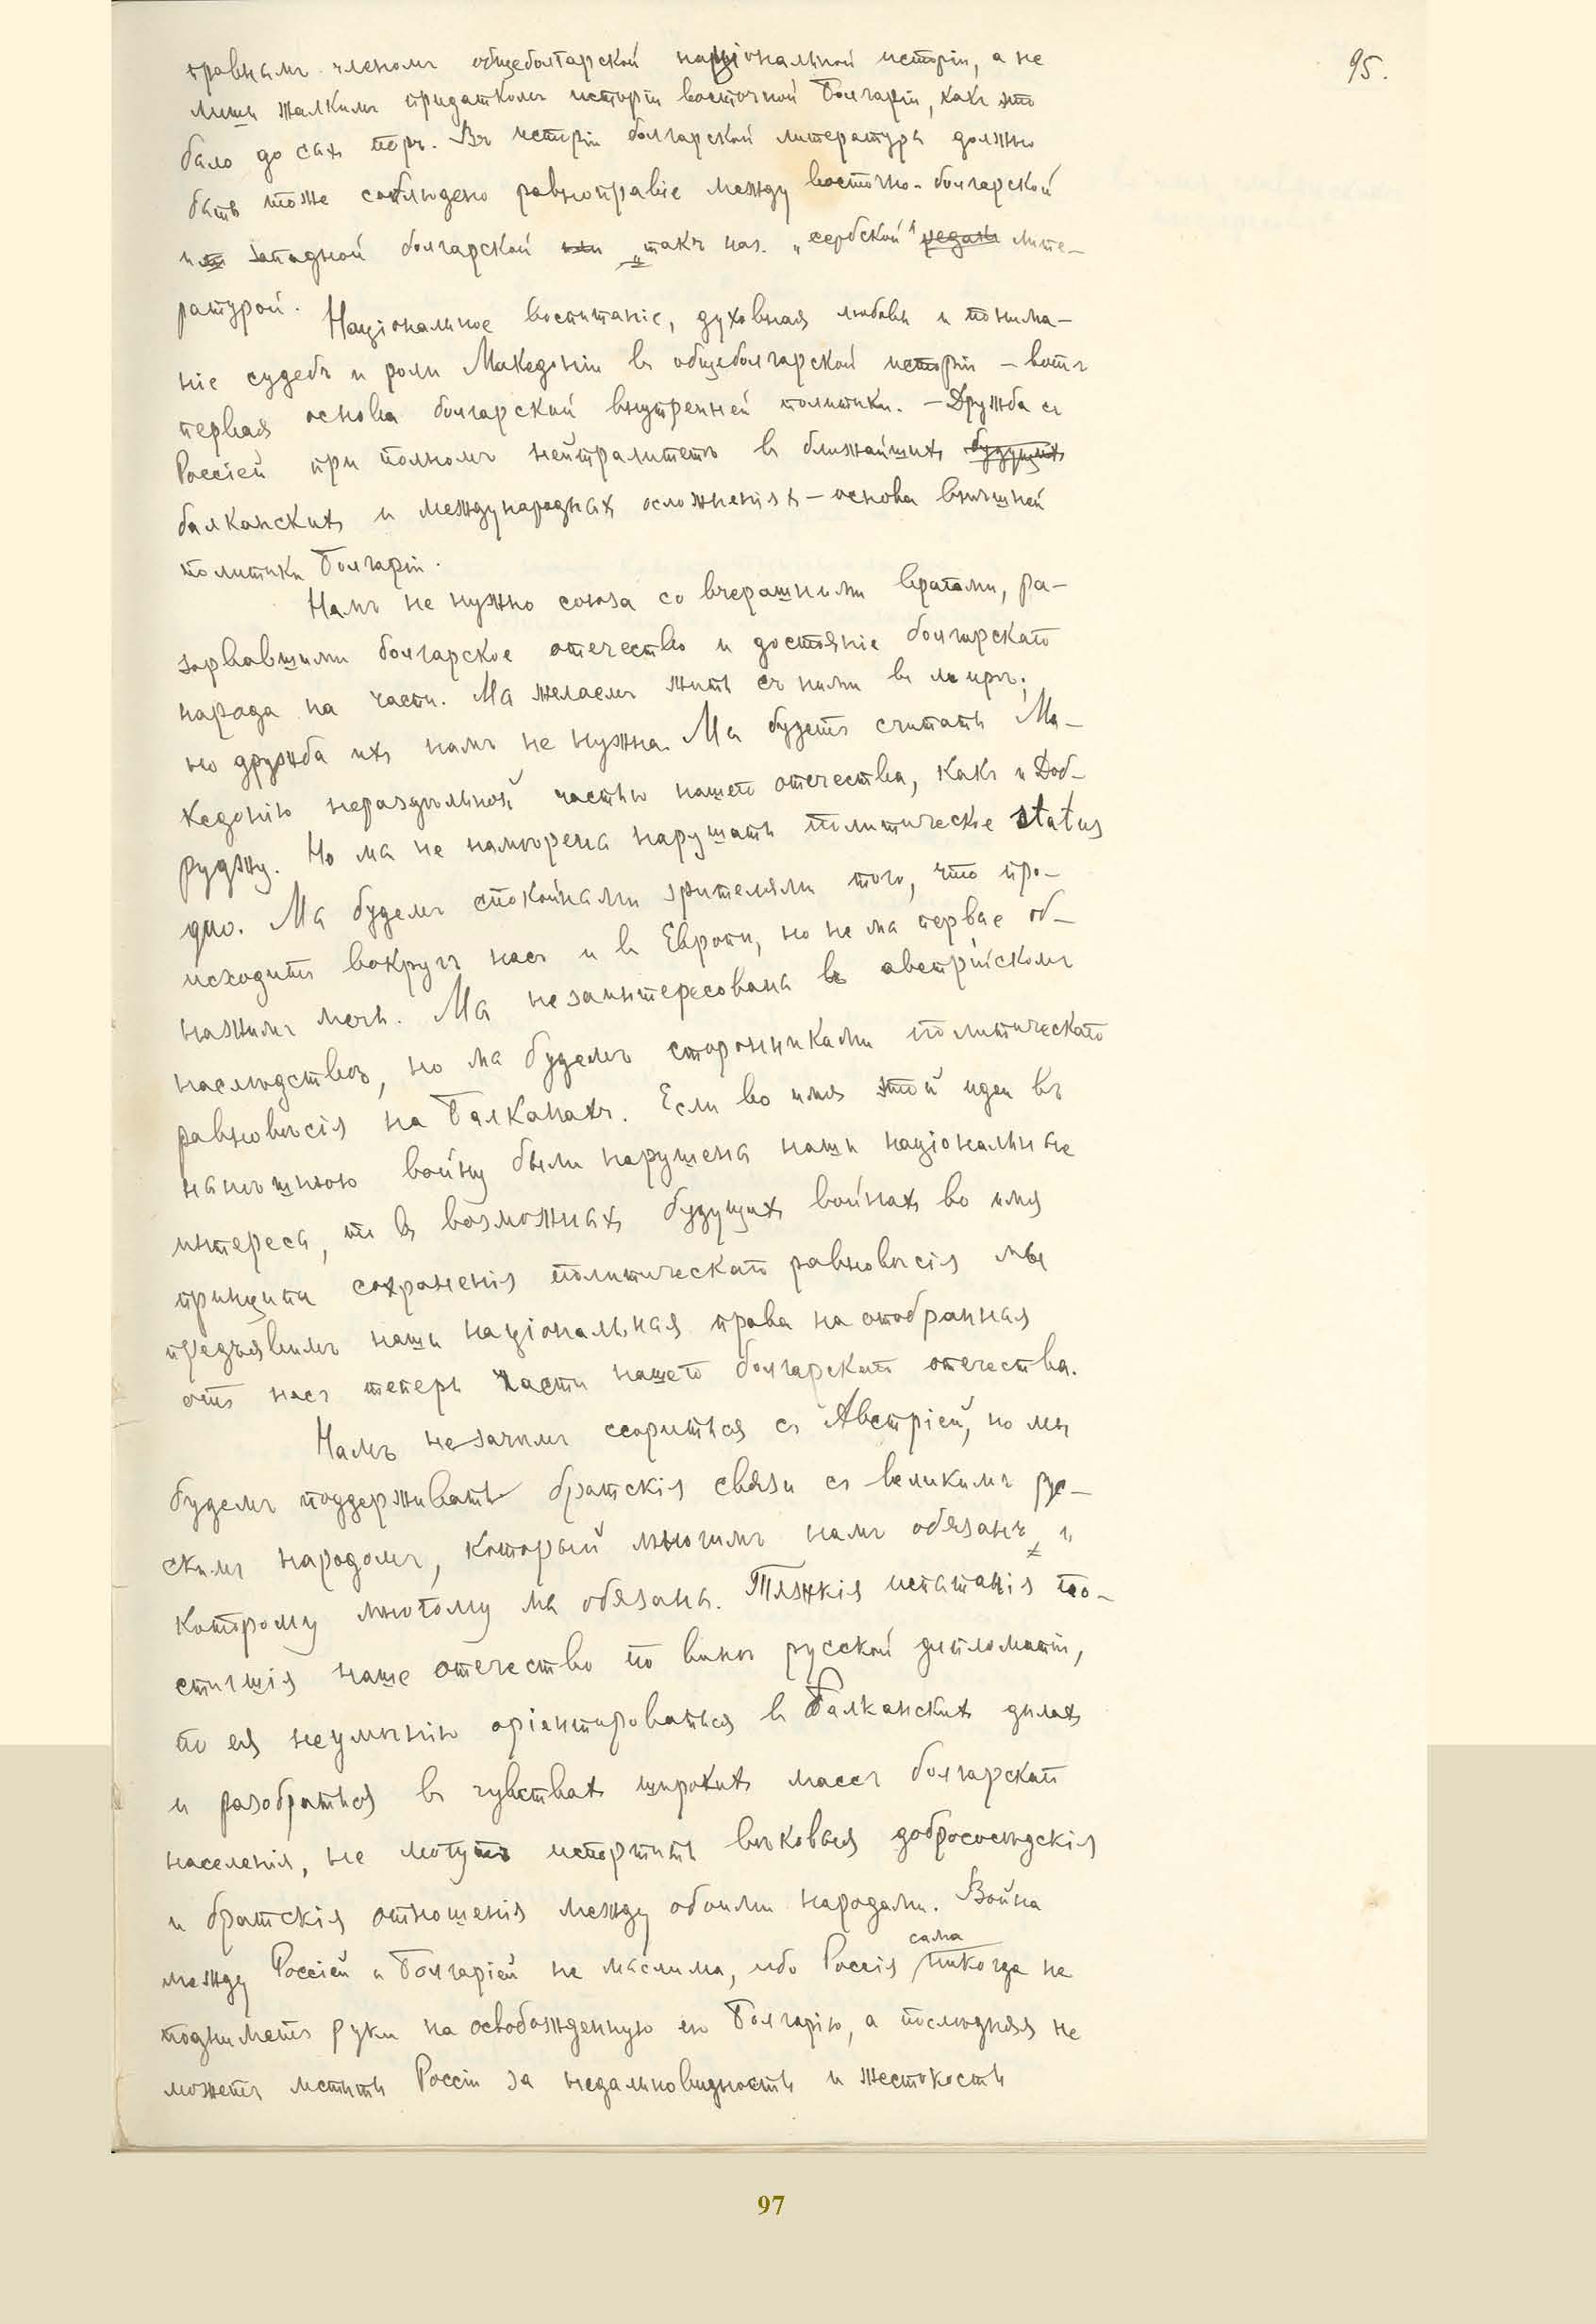 95.
правнымъ членомъ общеболгарской національной исторіи, а не
лишь жалкимъ придаткомъ исторіи восточной Болгаріи, какъ это
было до сихъ поръ. Въ исторіи болгарской литературы должно
быть тоже соблюдено равноправіе между восточно-болгарской
и западной болгарской или „такъ наз. „сербской" лите-
ратурой. Національное воспитаніе, духовная любовь и понима-
ніе судебъ и роли Македоніи въ общеболгарской исторіи – вотъ
первая основа болгарской внутренней политики. – Дружба съ
Россіей при полномъ нейтралитетѣ въ ближайшихъ будущихъ
балканскихъ и международныхъ осложненіяхъ – основа внѣшней
политики Болгаріи.
Намъ не нужно союза со вчерашними врагами, ра-
зорвавшими болгарское отечество и достояніе болгарскаго
народа на части. Мы желаемъ жить съ ними въ мирѣ;
но дружба ихъ намъ не нужна. Мы будемъ считать Ма-
кедонію нераздѣльной частью нашего отечества, какъ и Доб-
руджу. Но мы не намѣрены нарушать политическіе status
quo. Мы будемъ спокойными зрителями того, что про-
исходитъ вокругъ насъ и въ Европѣ, но не мы первые об-
нажимъ мечъ. Мы незаинтересованы въ австрійскомъ
наслѣдствѣ, но мы будемъ сторонниками политическаго
равновѣсія на Балканахъ. Если во имя этой идеи въ
нынѣшнюю войну были нарушены наши національные
интересы, то въ возможныхъ будущихъ войнахъ во имя
принципа сохраненія политическаго равновѣсія мы
предъявимъ наши національныя права на отобранныя
отъ насъ теперь части нашего болгарскаго отечества.
Намъ незачѣмъ ссориться съ Австріей, но мы
будемъ поддерживать братскія связи съ великимъ рус-
скимъ народомъ, который многимъ намъ обязанъ, и
которому многому мы обязаны. Тяжкія испытанія по-
стигшія наше отечество по винѣ русской дипломатіи,
по ея неумѣнію оріентироваться въ Балканскихъ дѣлахъ
и разобраться въ чувствахъ широкихъ массъ болгарскаго
населенія, не могутъ испортить вѣковыя добрососѣдскія
и братскія отношенія между обоими народами. Война
между Россіей и Болгаріей не мыслима, ибо Россія сама никогда не
подниметъ руки на освобожденную ею Болгарію, а послѣдняя не
можетъ мстить Россіи за недальновидность и жестокость
97